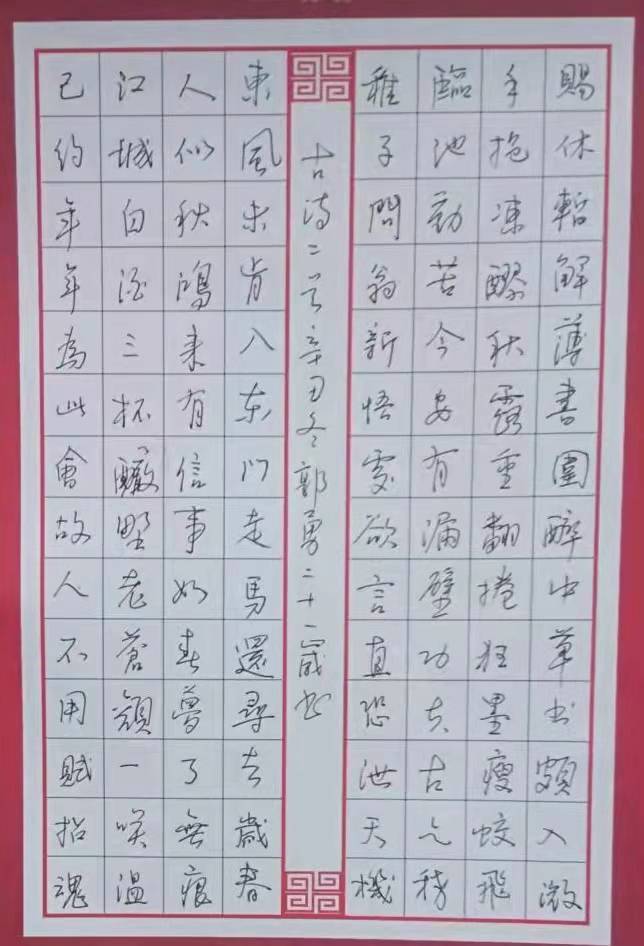 賜休暫解薄書圍醉中草書頗入微
手挹凍醪秋露重翻捲狂墨瘦蛟飛
臨池勤苦今安有漏壁功夫古亦稀
稚子問翁新悟處欲言直恐泄天機
古詩二首辛丑冬郭勇二十一歲書
東風未肯入東門走馬還尋去歲春
人似秋鴻來有信事如春夢了無痕
江城白酒三杯釅野老蒼顏一咲溫
已約年年為此會故人不用賦招魂